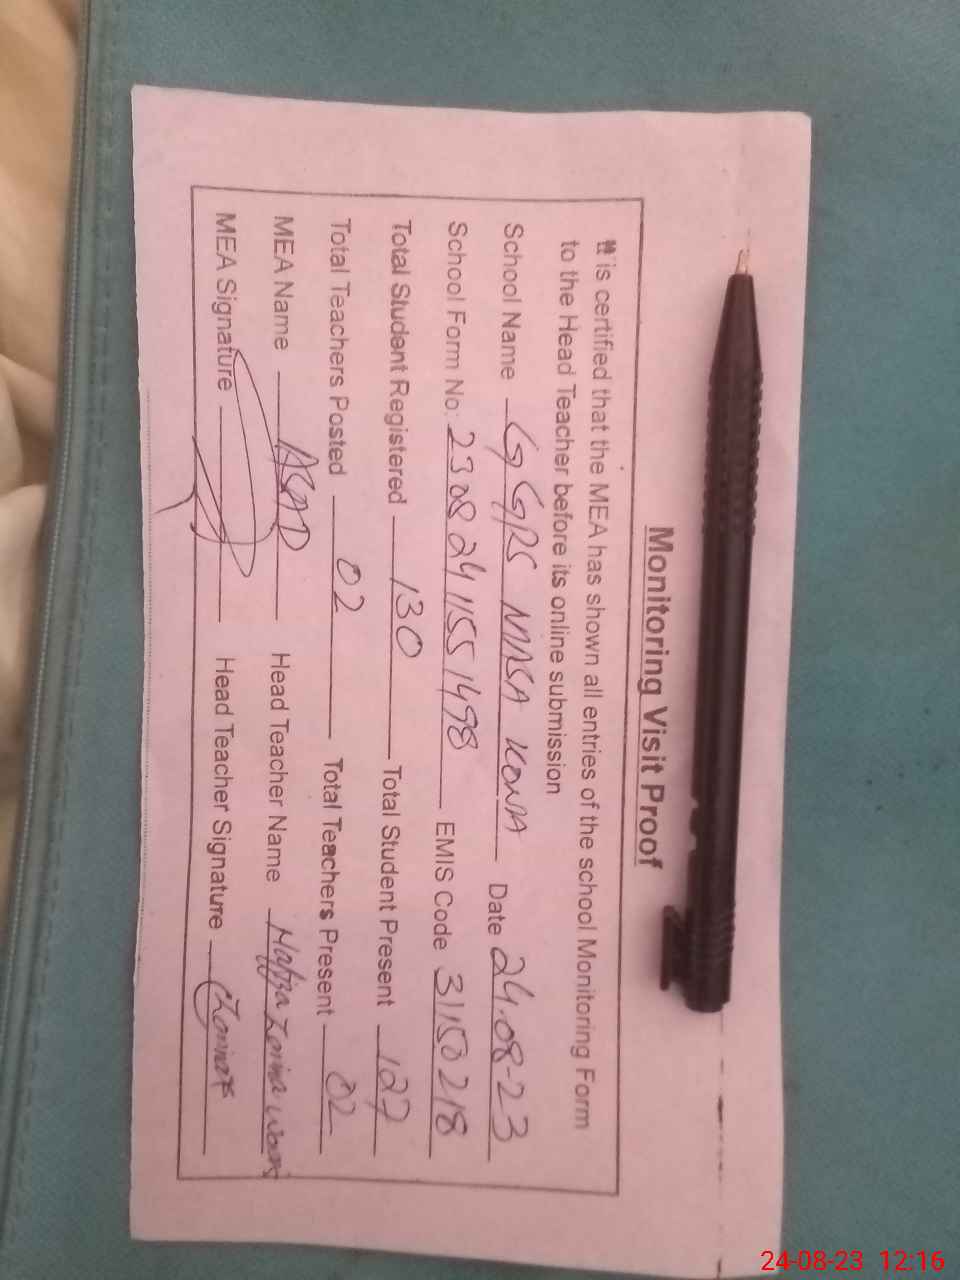 Monitoring Visit Proof
It is certified that the MEA has shown all entries of the school Monitoring Form
to the Head Teacher before its online submission
School Name GGPS MUSA KOWA Date 24-08-23
School Form No: 23082411551498 EMIS Code 31150218
Total Student Registered 130 Total Student Present 127
Total Teachers Posted 02 Total Teachers Present 02
MEA Name ASAD Head Teacher Name Hafiza Zarina
MEA Signature Head Teacher Signature
24-08-23 12:16